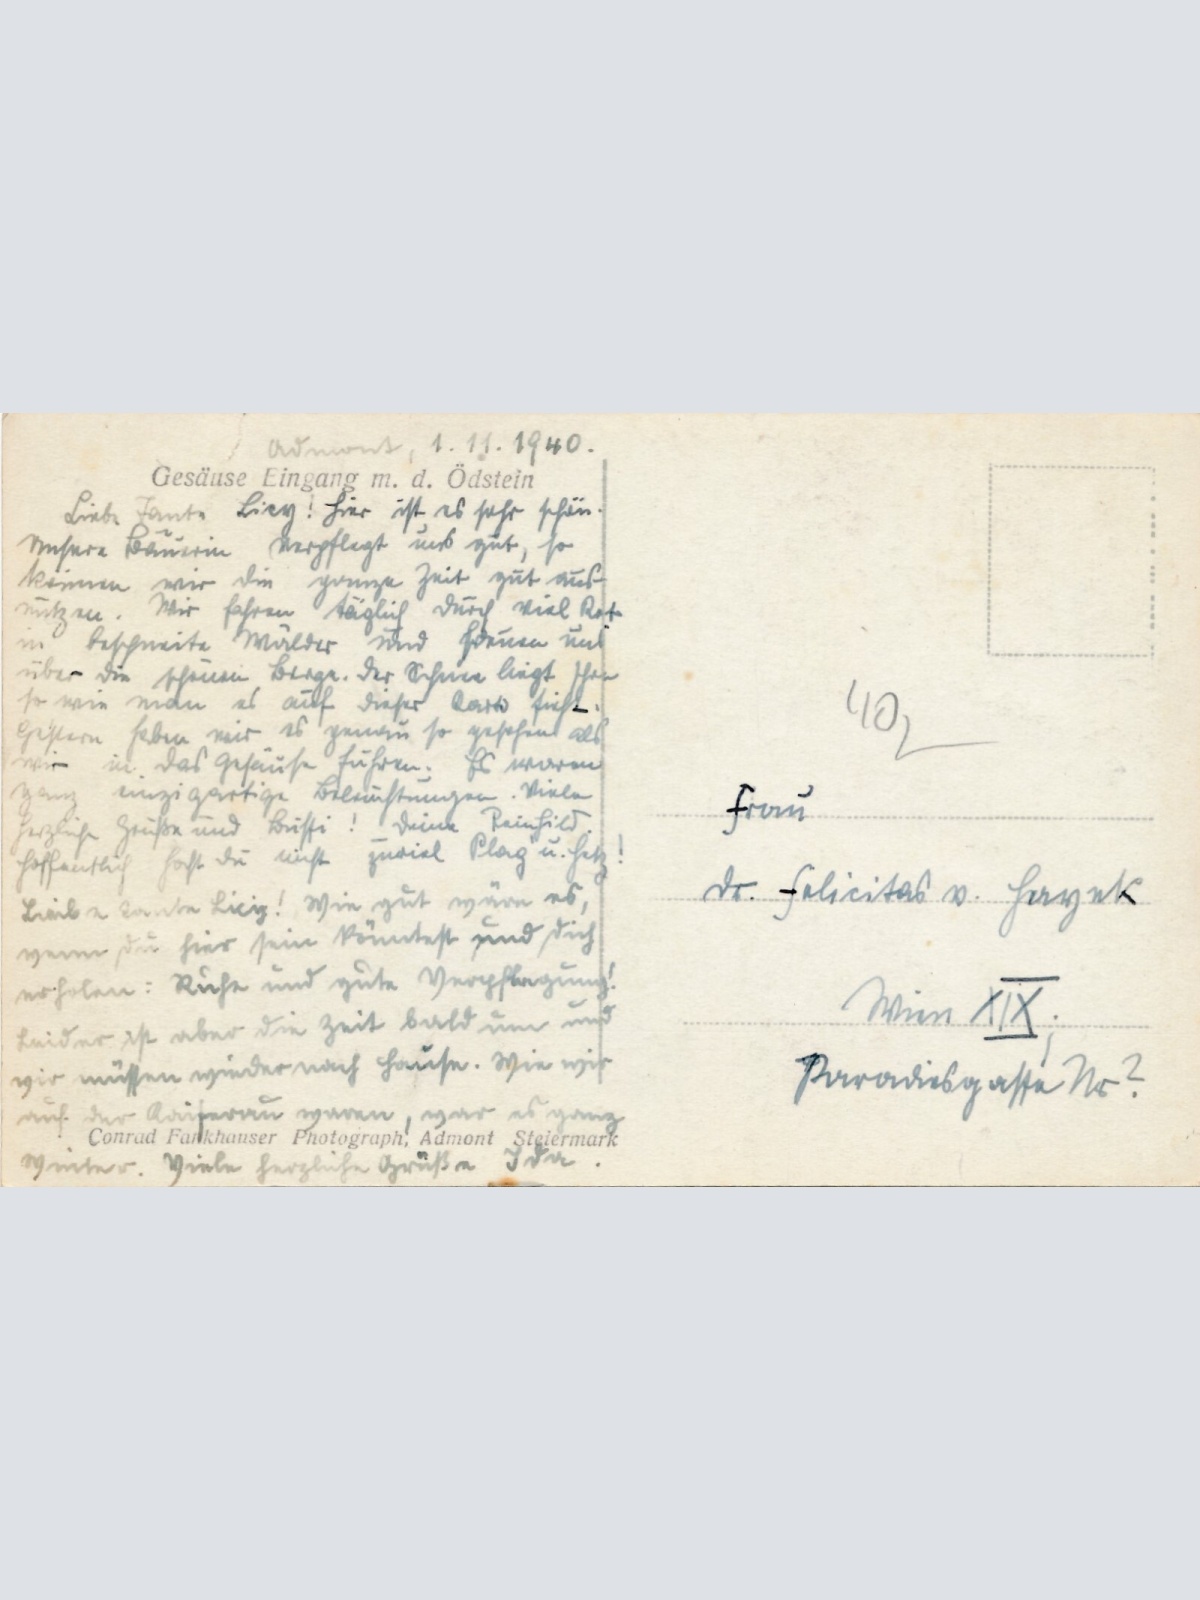 Admont, 1.11.1940.
Gesäuse Eingang m. d. Ödstein
Liebe Tante Licy! Hier ist es sehr schön.
Unsere Bäuerin verpflegt uns gut, so
können wir die ganze Zeit gut aus-
nützen. Wir fahren täglich durch viel Kot
in beschneite Wälder und freuen uns
über die schönen Berge. Der Schnee liegt
so wie man es auf dieser Karte sieht.
Gestern haben wir es genau so gesehen als
wir in das Gesäuse fuhren. Es waren
ganz einzigartige Beleuchtungen. Viele
herzliche Grüße und Bussi! Deine Reinhild.
Hoffentlich hast du nicht zuviel Plag u. Hetz!
Liebe Tante Licy! Wie gut wäre es,
wenn du hier sein könntest und dich
erholen: Ruhe und gute Verpflegung!
Leider ist aber die Zeit bald um und
wir müssen wieder nach Hause. Wie wir
auf der Kaiserau waren, war es ganz
Conrad Fankhauser Photograph, Admont Steiermark
Winter. Viele herzliche Grüße Ida.
40
Frau
Dr. Felicitas v. Hayek
Wien XIX,
Paradiesgasse Nr?